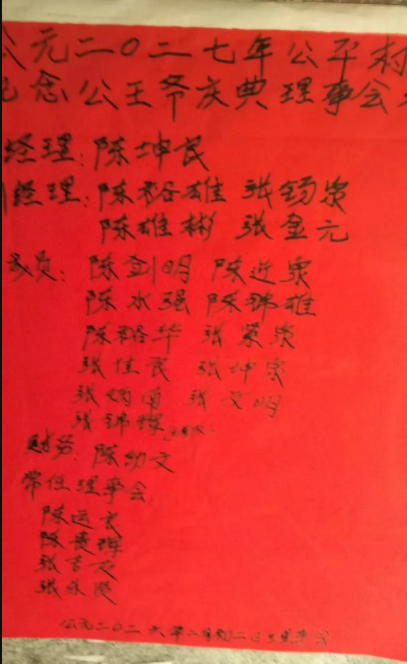 公元二〇二七年公平村
纪念公王爷庆典理事会
经理：陈坤民
经理：陈裕雄 张锡泉
陈雄彬 张金元
成员：陈剑明 陈近泉
陈水强 陈锦雄
陈裕华 张荣泉
张佳民 张坤泉
张炳 张文明
张锦辉
财务：陈幼文
常任理事会
陈运
陈贵
张吉
张永
公元二〇二六年二月初二日